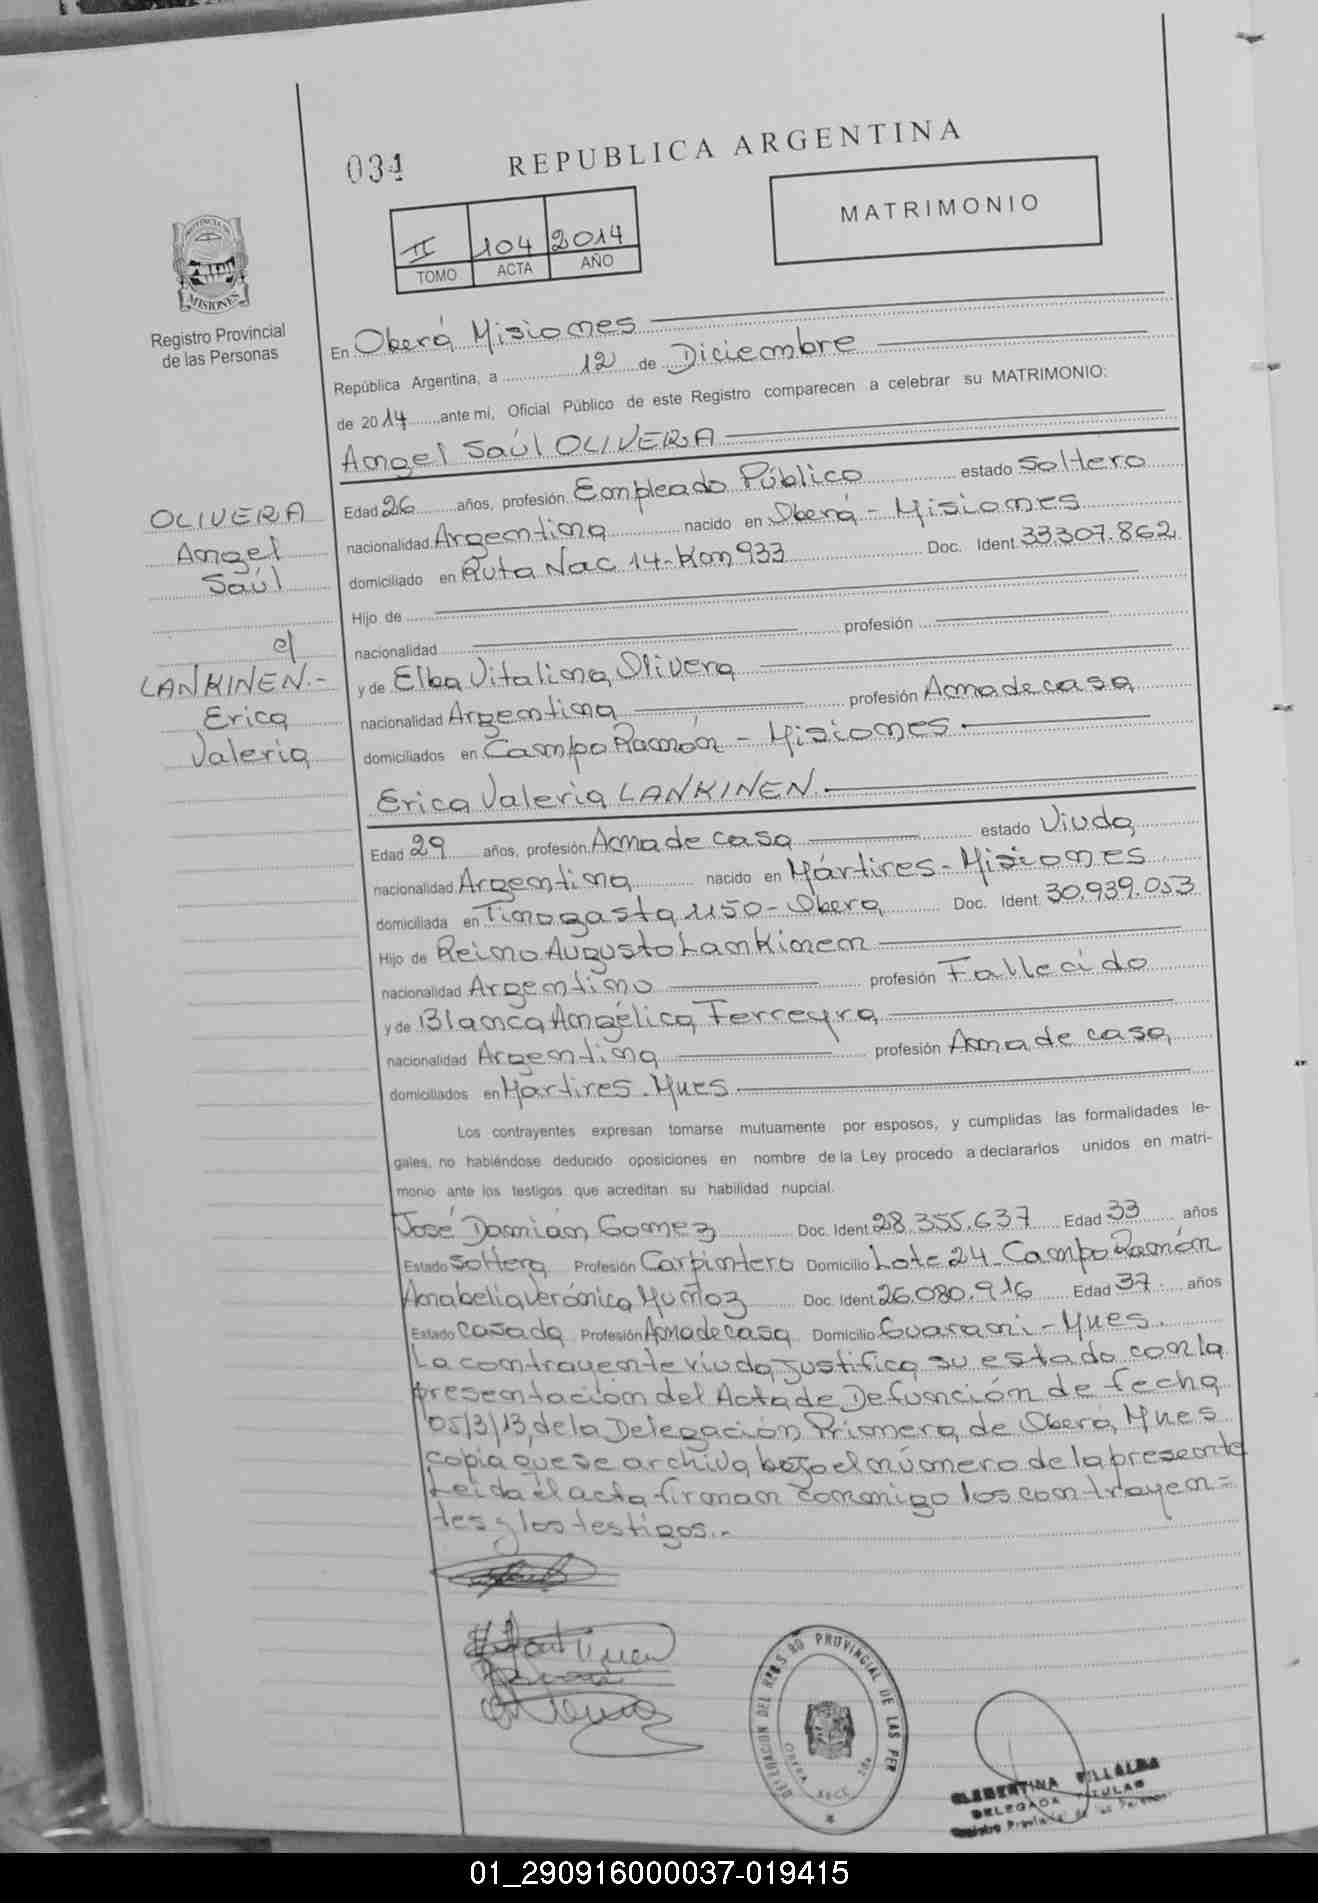 034
REPUBLICA ARGENTINA
MATRIMONIO
II 104 2014
TOMO ACTA AÑO
PROVINCIA DE
MISIONES
Registro Provincial
de las Personas
En Oberá Misiones
República Argentina, a 12 de Diciembre
de 2014 ante mi, Oficial Público de este Registro comparecen a celebrar su MATRIMONIO:
Angel Saúl OLIVERA
Edad 26 años, profesión Empleado Público estado Soltero
nacionalidad Argentina nacido en Oberá - Misiones
domiciliado en Ruta Nac 14-Km 933 Doc. Ident. 33.307.862
Hijo de
nacionalidad profesión
y de Elba Vitalina Olivera
nacionalidad Argentina profesión Ama de casa
domiciliados en Campo Ramón - Misiones
OLIVERA
Angel
Saúl
c/
LANKINEN.-
Erica
Valeria
Erica Valeria LANKINEN.
Edad 29 años, profesión Ama de casa estado Viuda
nacionalidad Argentina nacido en Mártires - Misiones
domiciliada en Tinogasta 1150 - Obera Doc. Ident. 30.939.053
Hijo de Reino Augusto Lankinen
nacionalidad Argentino profesión Fallecido
y de Blanca Angélica Ferreyra
nacionalidad Argentina profesión Ama de casa
domiciliados en Martires. Mnes
Los contrayentes expresan tomarse mutuamente por esposos, y cumplidas las formalidades le-
gales, no habiéndose deducido oposiciones en nombre de la Ley procedo a declararlos unidos en matri-
monio ante los testigos que acreditan su habilidad nupcial.
José Damián Gomez Doc. Ident. 28.355.637 Edad 33 años
Estado Soltero Profesión Carpintero Domicilio Lote 24- Campo Ramón
Anabelia Verónica Muñoz Doc. Ident. 26.080.916 Edad 37 años
Estado Casada Profesión Ama de casa Domicilio Guarani - Mnes.
La contrayente viuda justifica su estado con la
presentación del Acta de Defunción de fecha
05/3/13, de la Delegación Primera de Oberá, Mnes
copia que se archiva bajo el número de la presente
Leida el acta firman conmigo los contrayen=
tes y los testigos.-
DELEGACION DEL REGISTRO PROVINCIAL DE LAS PER
OBERA SECC. 2da
CLEMENTINA VILLALBA
DELEGADA TITULAR
Registro Provincial de las Personas
01_290916000037-019415